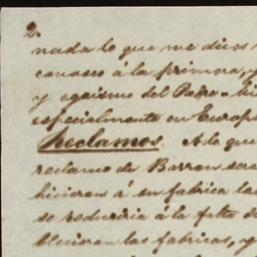 2.
nada lo que me dices
conosco á la primera, y
y egoismo del Padre
especialmente en Europa
Reclamos. A lo que
reclamo de Barron sera
hicieron á su fabrica la
se reduciria á la falta de
las fabricas, y